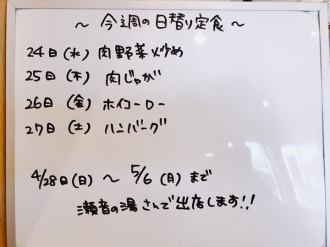 ～ 今週の日替り定食 ～
24日(水) 肉野菜炒め
25日(木) 肉じゃが
26日(金) ホイコーロー
27日(土) ハンバーグ
4/28日(日) ～ 5/6(月)まで
瀬音の湯さんで出店します!!